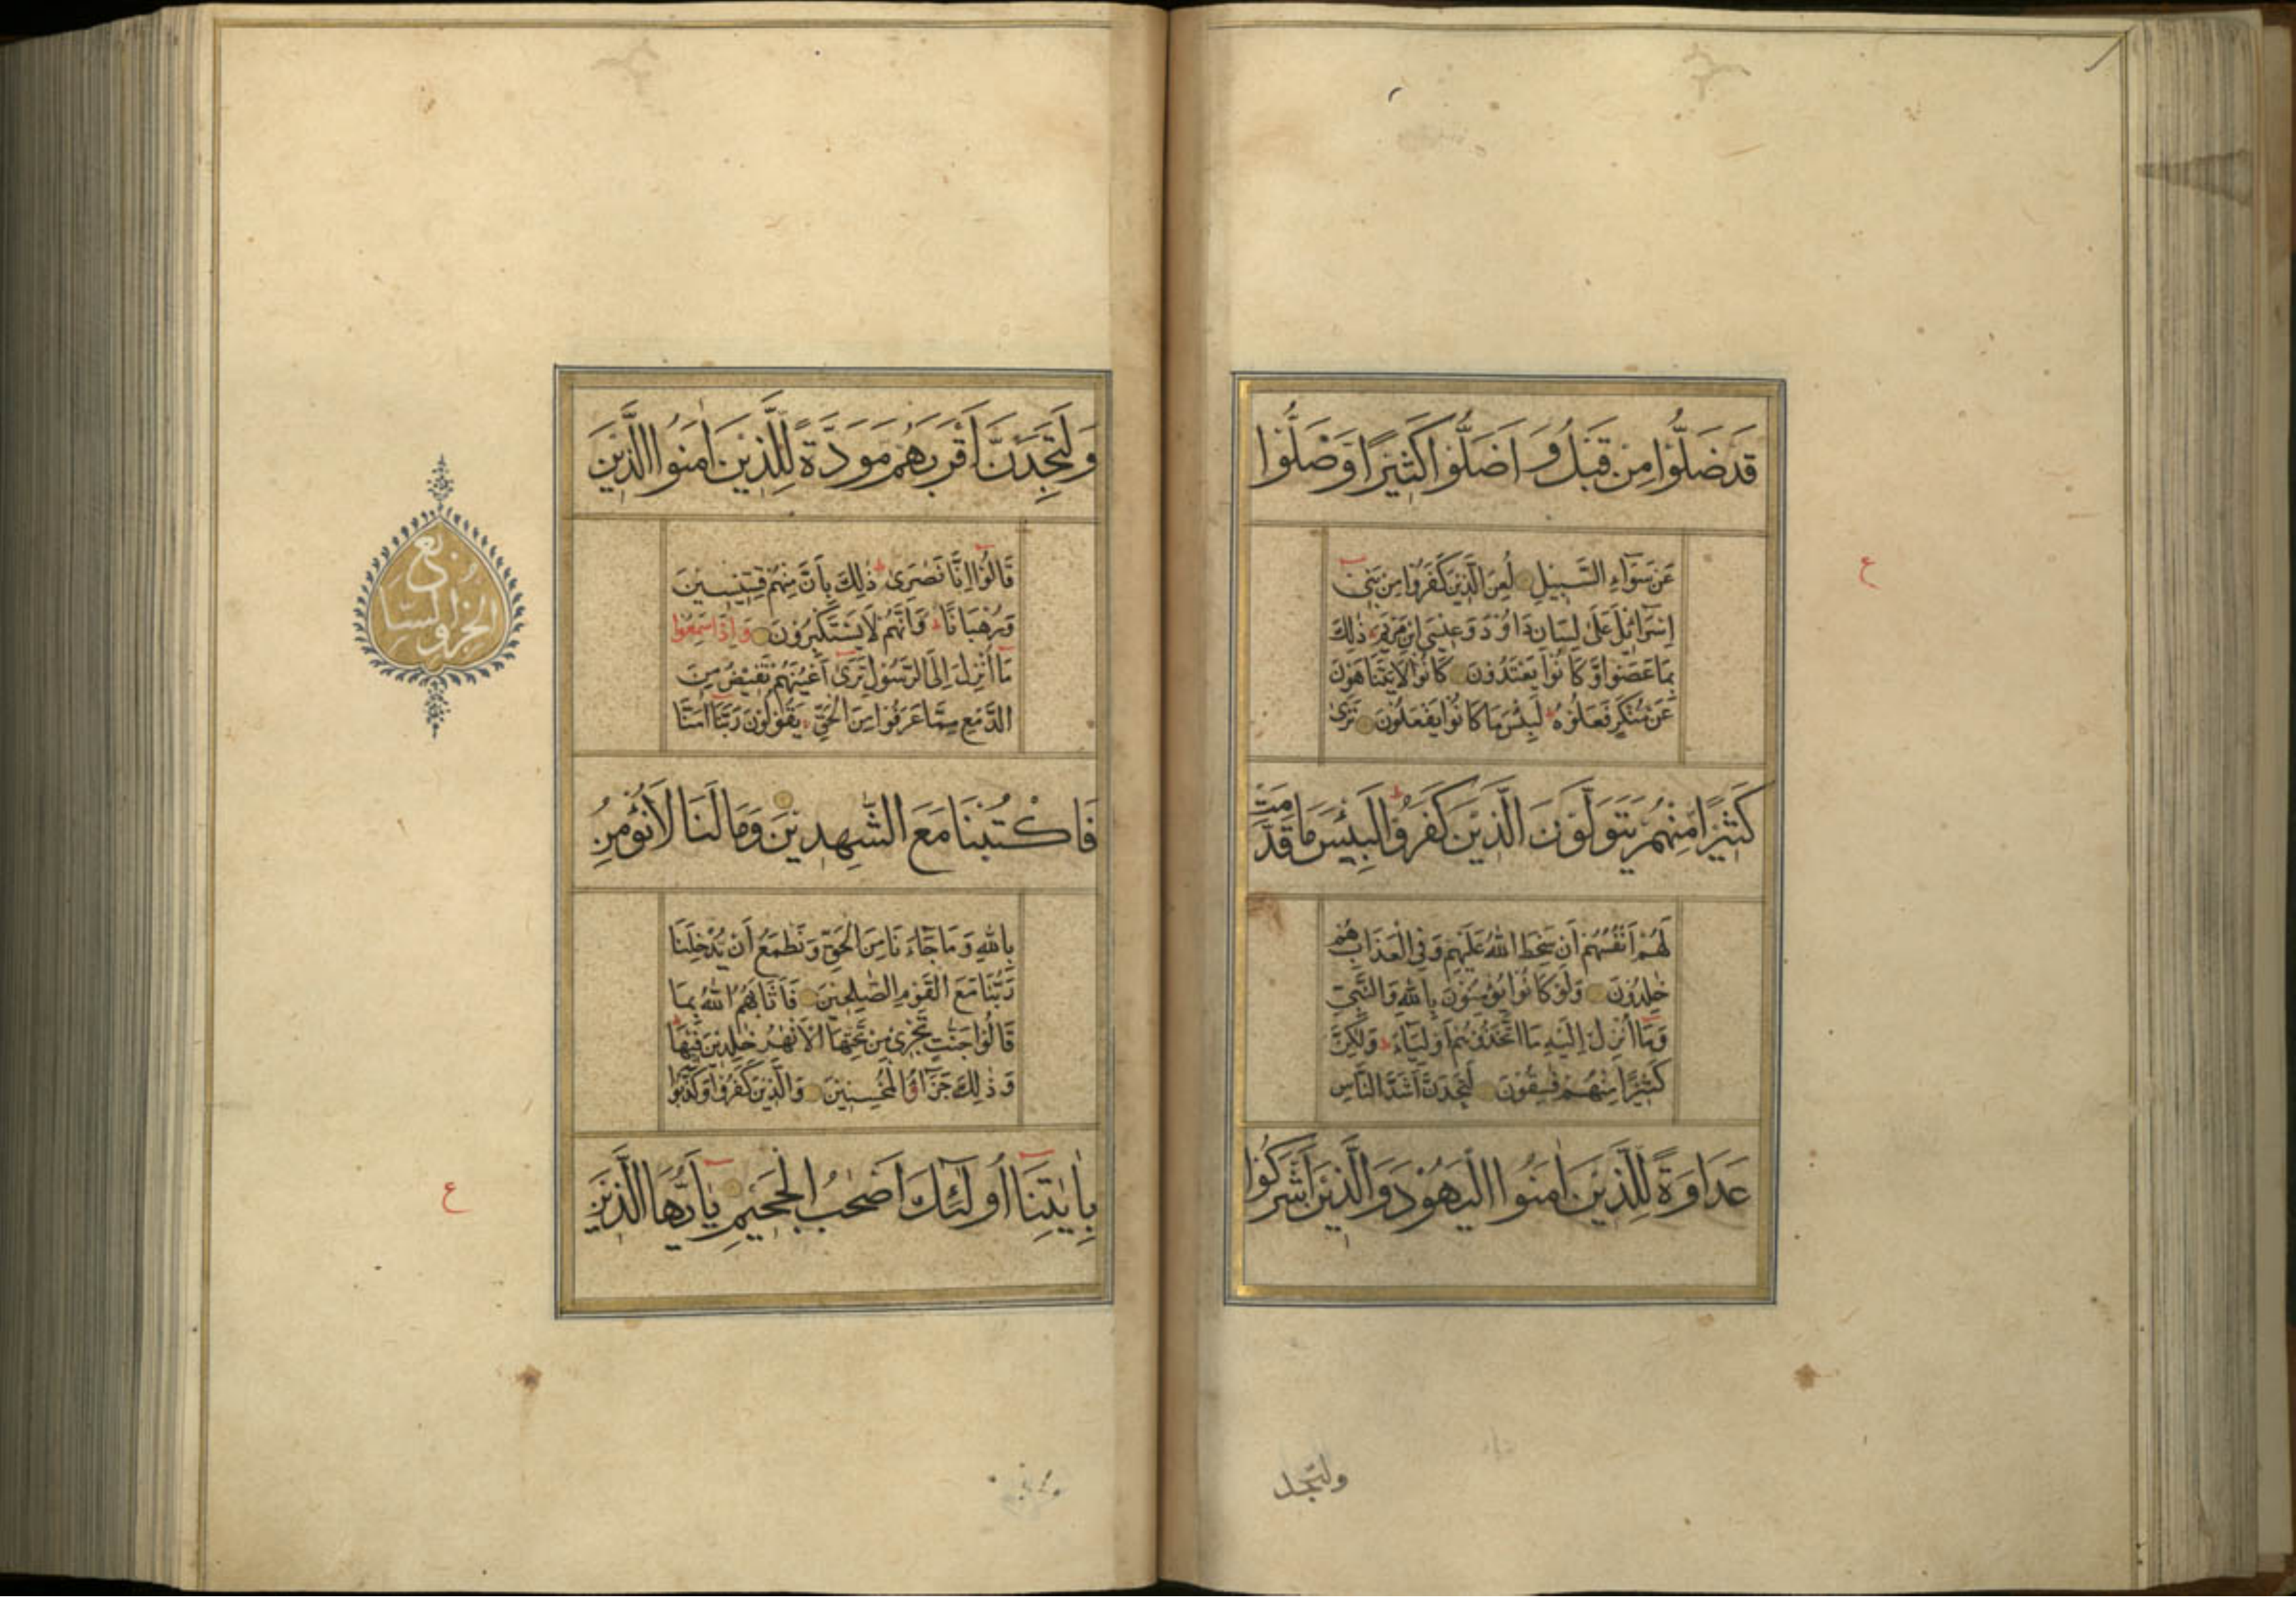 قَدْ ضَلُّوْا مِنْ قَبْلُ وَ اَضَلُّوْا كَثِيْرًا وَّضَلُّوْا
عَنْ سَوَآءِ السَّبِيْلِ لُعِنَ الَّذِيْنَ كَفَرُوْا مِنْ بَنِيْٓ
اِسْرَآئِيْلَ عَلٰى لِسَانِ دَاوٗدَ وَعِيْسَى ابْنِ مَرْيَمَ ط ذٰلِكَ
بِمَا عَصَوْا وَّكَانُوْا يَعْتَدُوْنَ كَانُوْا لَا يَتَنَاهَوْنَ
عَنْ مُنْكَرٍ فَعَلُوْهُ ط لَبِئْسَ مَا كَانُوْا يَفْعَلُوْنَ تَرٰى
كَثِيْرًا مِنْهُمْ يَتَوَلَّوْنَ الَّذِيْنَ كَفَرُوْا ط لَبِئْسَ مَا قَدَّمَتْ
لَهُمْ اَنْفُسُهُمْ اَنْ سَخِطَ اللّٰهُ عَلَيْهِمْ وَفِي الْعَذَابِ هُمْ
خٰلِدُوْنَ وَلَوْ كَانُوْا يُؤْمِنُوْنَ بِاللّٰهِ وَالنَّبِيِّ
وَمَآ اُنْزِلَ اِلَيْهِ مَا اتَّخَذُوْهُمْ اَوْلِيَآءَ وَلٰكِنَّ
كَثِيْرًا مِنْهُمْ فٰسِقُوْنَ لَتَجِدَنَّ اَشَدَّ النَّاسِ
عَدَاوَةً لِلَّذِيْنَ اٰمَنُوا الْيَهُوْدَ وَالَّذِيْنَ اَشْرَكُوْا
ع
ولتجد
وَلَتَجِدَنَّ اَقْرَبَهُمْ مَوَدَّةً لِلَّذِيْنَ اٰمَنُوا الَّذِيْنَ
قَالُوْٓا اِنَّا نَصٰرٰى ط ذٰلِكَ بِاَنَّ مِنْهُمْ قِسِّيْسِيْنَ
وَرُهْبَانًا وَّاَنَّهُمْ لَا يَسْتَكْبِرُوْنَ وَاِذَا سَمِعُوْا
مَآ اُنْزِلَ اِلَى الرَّسُوْلِ تَرٰٓى اَعْيُنَهُمْ تَفِيْضُ مِنَ
الدَّمْعِ مِمَّا عَرَفُوْا مِنَ الْحَقِّ يَقُوْلُوْنَ رَبَّنَآ اٰمَنَّا
فَاكْتُبْنَا مَعَ الشّٰهِدِيْنَ وَمَا لَنَا لَا نُؤْمِنُ
بِاللّٰهِ وَمَا جَآءَنَا مِنَ الْحَقِّ وَنَطْمَعُ اَنْ يُّدْخِلَنَا
رَبُّنَا مَعَ الْقَوْمِ الصّٰلِحِيْنَ فَاَثَابَهُمُ اللّٰهُ بِمَا
قَالُوْا جَنّٰتٍ تَجْرِيْ مِنْ تَحْتِهَا الْاَنْهٰرُ خٰلِدِيْنَ فِيْهَا ط
وَذٰلِكَ جَزَآؤُ الْمُحْسِنِيْنَ وَالَّذِيْنَ كَفَرُوْا وَكَذَّبُوْا
بِاٰيٰتِنَآ اُولٰٓئِكَ اَصْحٰبُ الْجَحِيْمِ يٰٓاَيُّهَا الَّذِيْنَ
الحزب السابع
ع